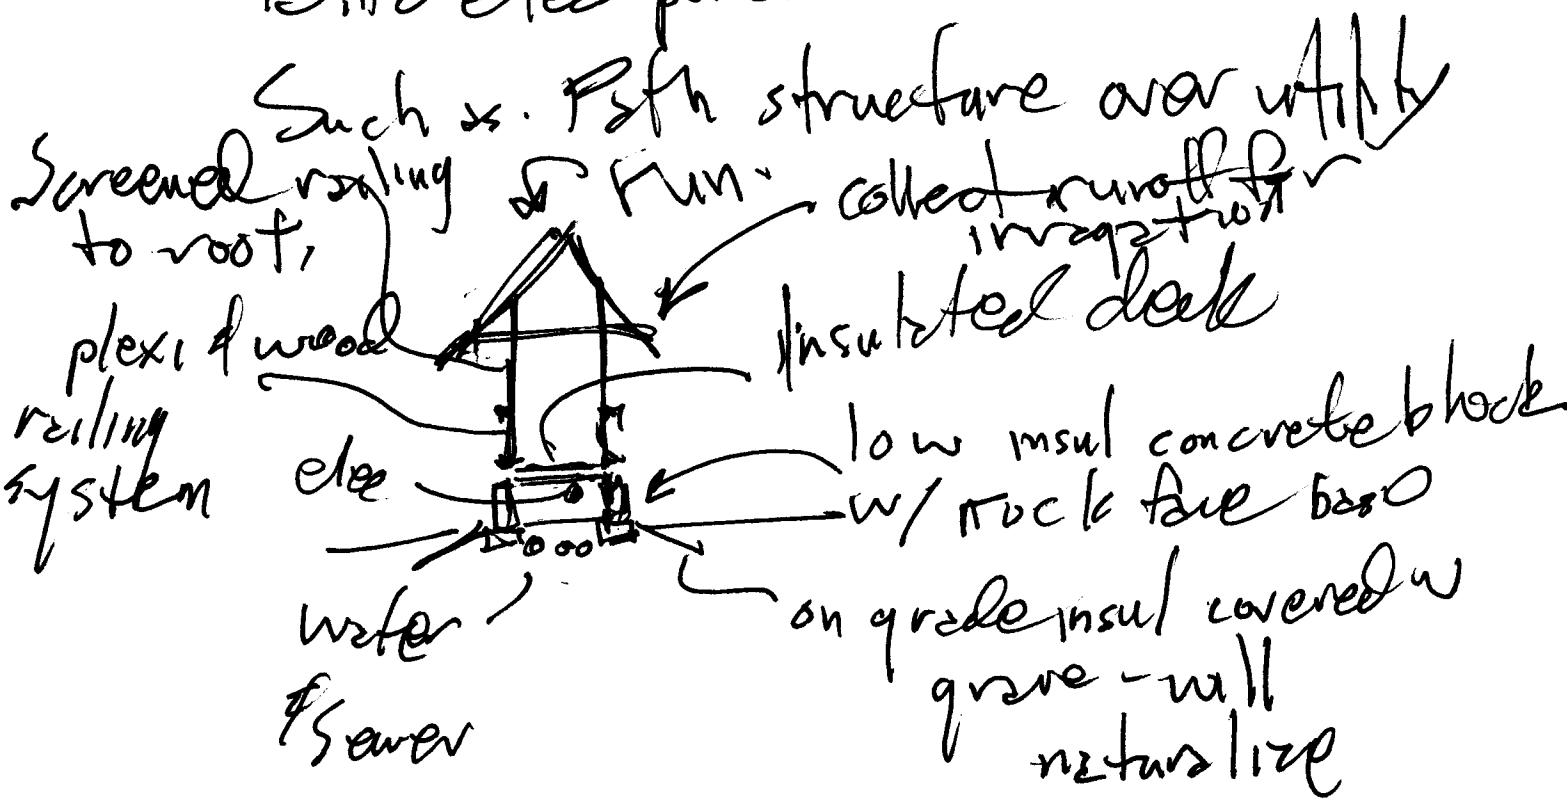 Such as. Path structure over utility
run.
Screened railing
to roof,
collect runoff for
irragation
plexi & wood
railing
system
Insulated deck
elec
low insul concrete block
w/ rock face base
water
& Sewer
on grade insul covered w
grave - will
naturalize